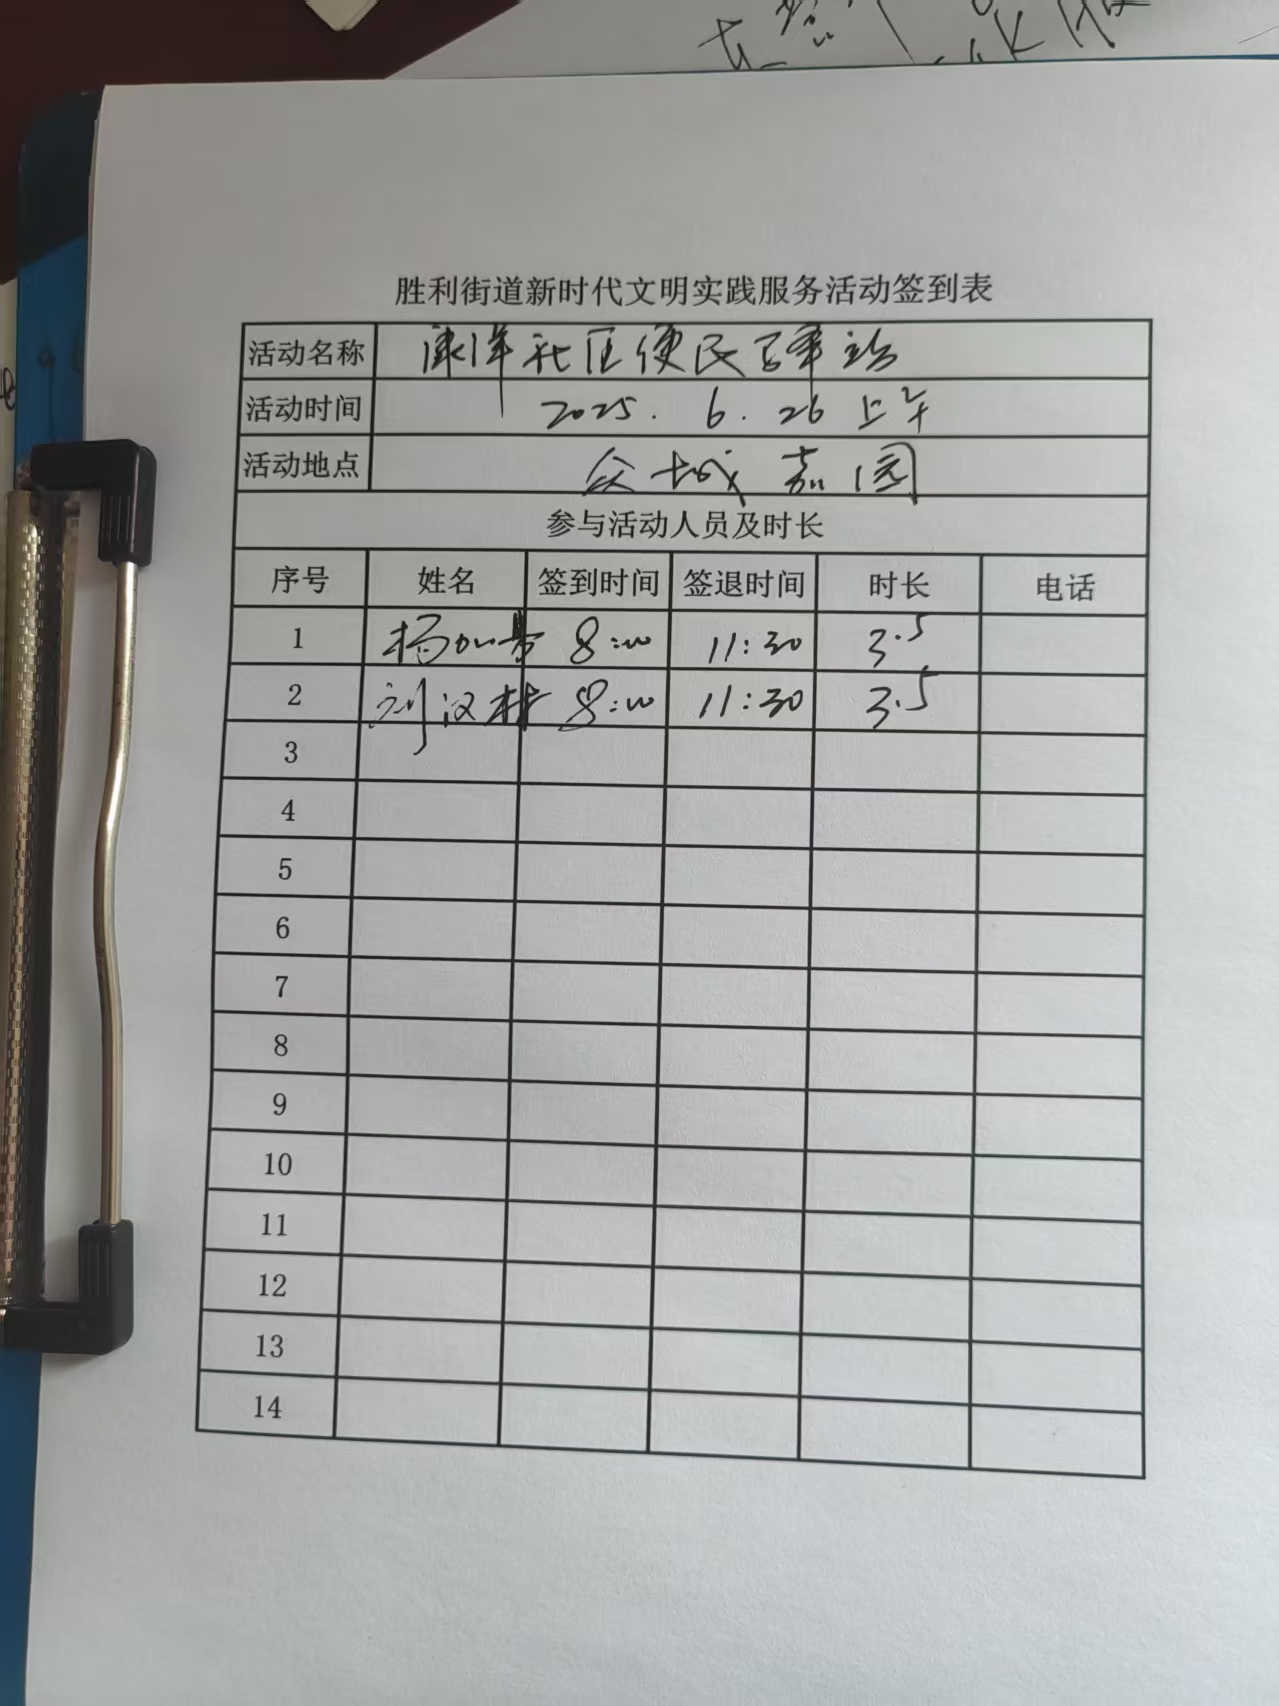 胜利街道新时代文明实践服务活动签到表
活动名称 康洋社区便民百事站
活动时间 2025.6.26上午
活动地点 众城嘉园
参与活动人员及时长
序号 姓名 签到时间 签退时间 时长 电话
1 杨 8:00 11:30 3.5
2 刘汉林 8:00 11:30 3.5
3
4
5
6
7
8
9
10
11
12
13
14